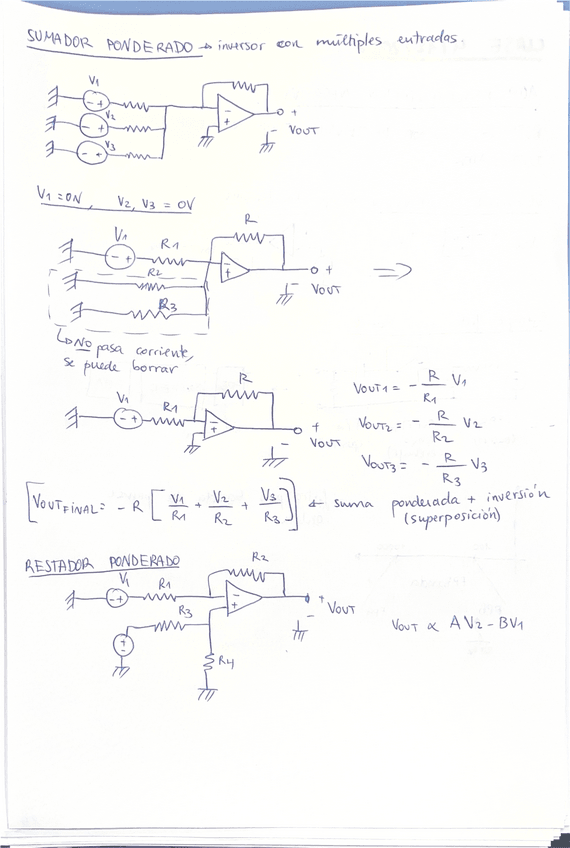 SUMADOR PONDERADO → inversor con múltiples entradas.
V1
V2
V3
- +
- +
- +
-
+
+
-
VOUT
V1 = ON, V2, V3 = 0V
V1
R1
R
R2
R3
- +
-
+
+
-
VOUT
⇒
↳ NO pasa corriente,
se puede borrar
V1
R1
R
- +
-
+
+
-
VOUT
VOUT1 = - R/R1 V1
VOUT2 = - R/R2 V2
VOUT3 = - R/R3 V3
[VOUT FINAL = - R [V1/R1 + V2/R2 + V3/R3]] ← suma ponderada + inversión
(superposición)
RESTADOR PONDERADO
V1
R1
R2
R3
R4
- +
-
+
+
-
+
-
VOUT
VOUT ∝ AV2 - BV1